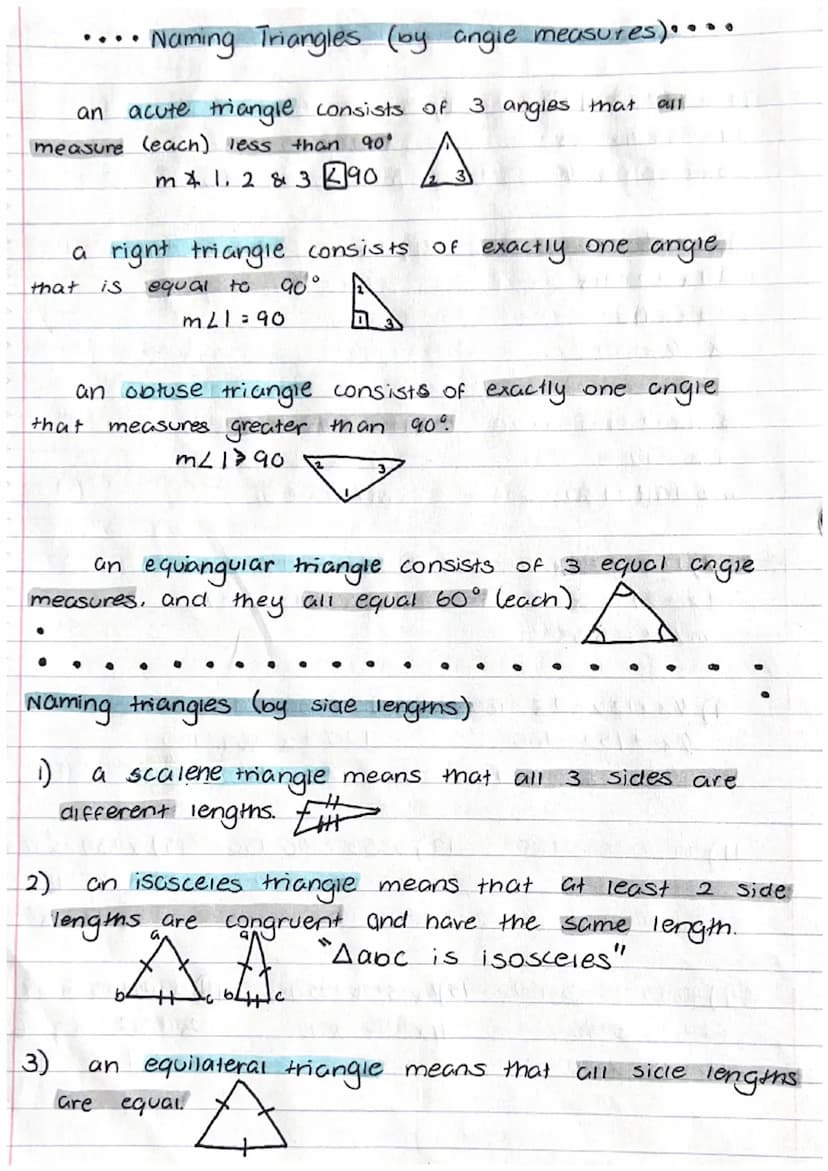 Naming Triangles (by angle measures)
an acute triangle consists of 3 angles that all
measure (each) less than 90°
m∡ 1, 2 & 3 < 90
1
2 3
a right triangle consists of exactly one angle
that is equal to 90°
2
1 3
m∠1 = 90
an obtuse triangle consists of exactly one angle
that measures greater than 90°.
m∠1 > 90
2 3
1
an equiangular triangle consists of 3 equal angle
measures, and they all equal 60° (each)
Naming triangles (by side lengths)
1) a scalene triangle means that all 3 sides are
different lengths.
2) an isosceles triangle means that at least 2 side
lengths are congruent and have the same length.
a a
"△abc is isosceles"
b c b c
3) an equilateral triangle means that all side lengths
are equal.